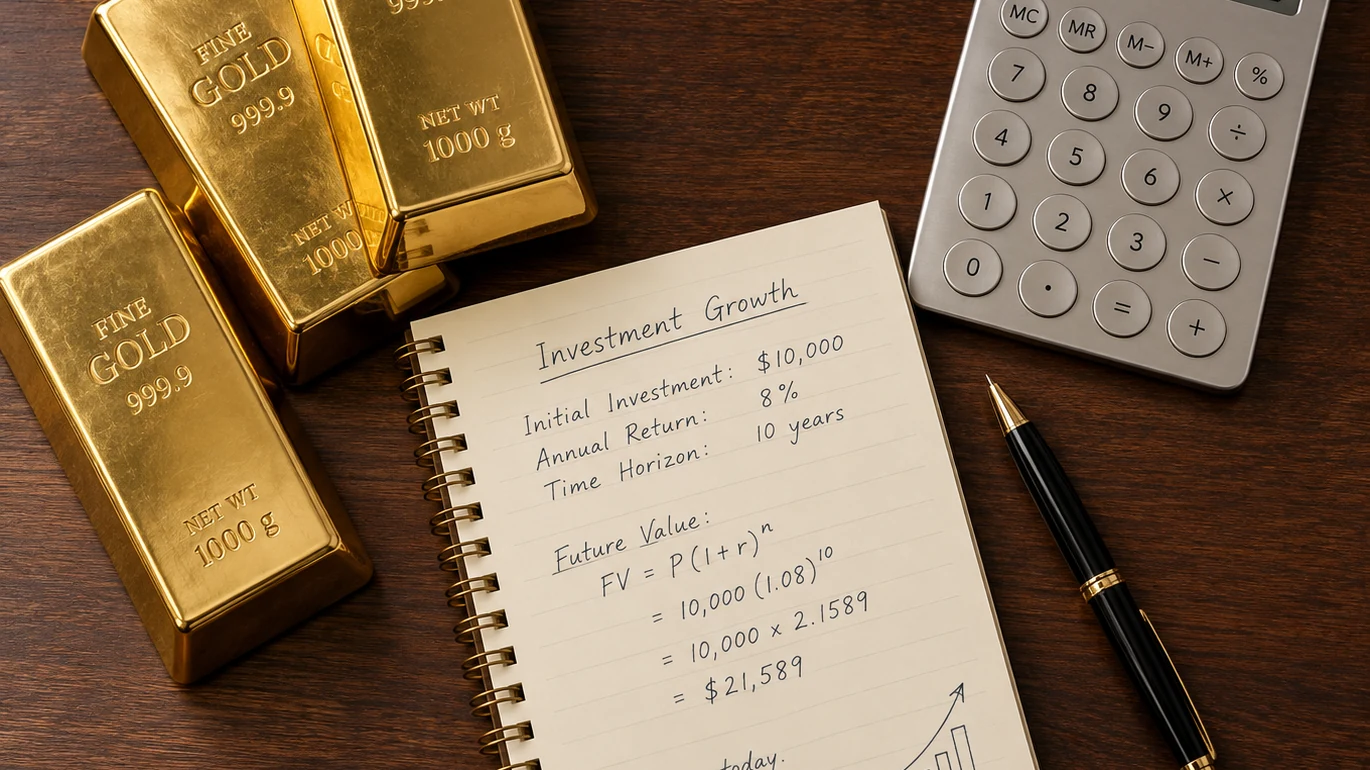 FINE
GOLD
999.9
NET WT
1000
999.9
NET WT
1000 g
FINE
GOLD
999.9
NET WT
1000 g
MC MR M− M+ %
7 8 9 ÷
4 5 6 ×
1 2 3 −
0 . = +
Investment Growth
Initial Investment: $10,000
Annual Return: 8%
Time Horizon: 10 years
Future Value:
FV = P(1+r)^n
= 10,000 (1.08)^10
= 10,000 x 2.1589
= $21,589
today.